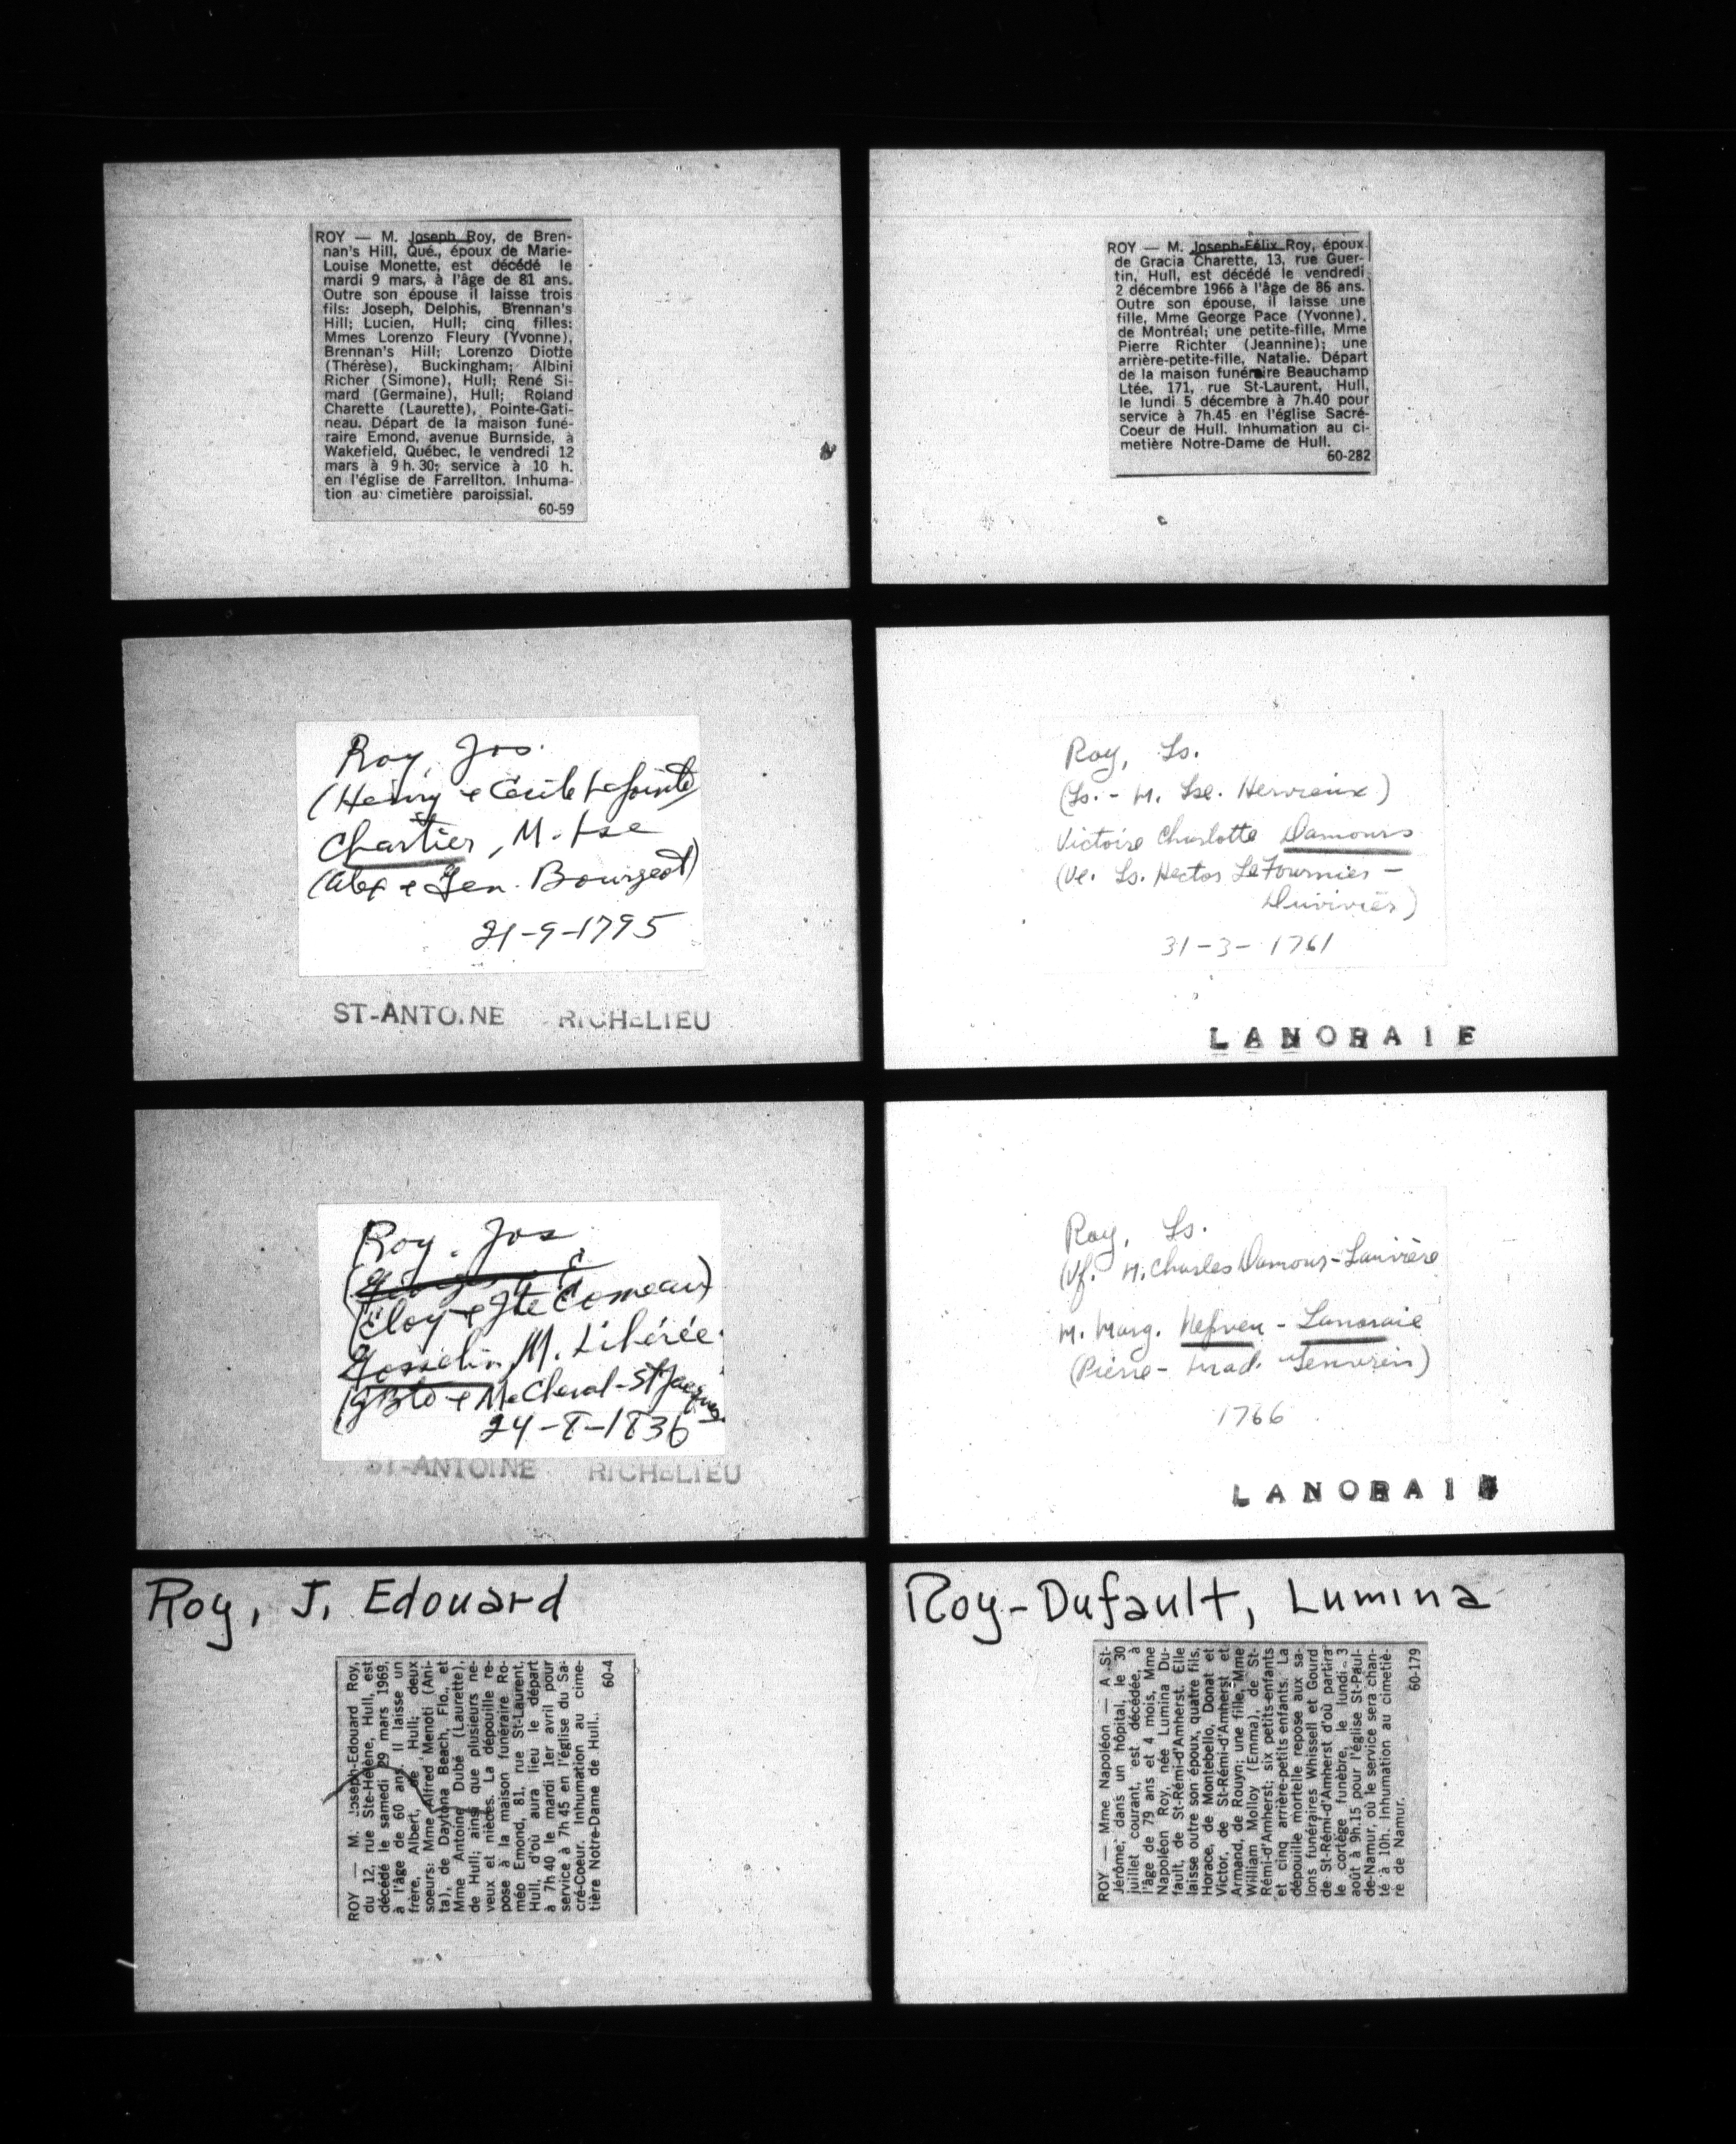 ROY — M. Joseph Roy, de Bren-
nan's Hill, Qué., époux de Marie-
Louise Monette, est décédé le
mardi 9 mars, à l'âge de 81 ans.
Outre son épouse il laisse trois
fils: Joseph, Delphis, Brennan's
Hill; Lucien, Hull; cinq filles:
Mmes Lorenzo Fleury (Yvonne),
Brennan's Hill; Lorenzo Diotte
(Thérèse), Buckingham; Albini
Richer (Simone), Hull; René Si-
mard (Germaine), Hull; Roland
Charette (Laurette), Pointe-Gati-
neau. Départ de la maison funé-
raire Emond, avenue Burnside, à
Wakefield, Québec, le vendredi 12
mars à 9 h. 30; service à 10 h.
en l'église de Farrellton. Inhuma-
tion au cimetière paroissial.
60-59
ROY — M. Joseph-Félix Roy, époux
de Gracia Charette, 13, rue Guer-
tin, Hull, est décédé le vendredi
2 décembre 1966 à l'âge de 86 ans.
Outre son épouse, il laisse une
fille, Mme George Pace (Yvonne),
de Montréal; une petite-fille, Mme
Pierre Richter (Jeannine); une
arrière-petite-fille, Natalie. Départ
de la maison funéraire Beauchamp
Ltée, 171, rue St-Laurent, Hull,
le lundi 5 décembre à 7h.40 pour
service à 7h.45 en l'église Sacré-
Coeur de Hull. Inhumation au ci-
metière Notre-Dame de Hull.
60-282
Roy, Jos.
(Henry & Cécile Lajointe)
Chartier, M. Lse
(Alex & Gen. Bourgeot)
21-9-1795
ST-ANTOINE RICHELIEU
Roy, Ls.
(Ls. - M. Lse. Hervieux)
Victoire Charlotte Damours
(Ve. Ls. Hector LeFournier -
Duvivier)
31-3-1761
LANORAIE
Roy, Jos
(Eloy & Jte Comeau)
Gosselin, M. Libérée
(JBte & Me Cheval-St Jacques
24-8-1836
ST-ANTOINE RICHELIEU
Roy, Ls.
(Vf. M. Charles Damour-Louvière
M. Marg. Nepveu - Lanoraie
(Pierre - Mad. Jenvrin)
1766
LANORAI
Roy, J. Edouard
ROY — M. Joseph-Edouard Roy,
du 12, rue Ste-Hélène, Hull, est
décédé le samedi 29 mars 1969,
à l'âge de 60 ans. Il laisse un
frère, Albert, de Hull; deux
soeurs: Mme Alfred Menoti (Ani-
ta), de Daytona Beach, Flo., et
Mme Antoine Dubé (Laurette),
de Hull; ainsi que plusieurs ne-
veux et nièces. La dépouille re-
pose à la maison funéraire Ro-
méo Emond, 81, rue St-Laurent,
Hull, d'où aura lieu le départ
à 7h 40 le mardi 1er avril pour
service à 7h 45 en l'église du Sa-
cré-Coeur. Inhumation au cime-
tière Notre-Dame de Hull..
60-4
Roy-Dufault, Lumina
ROY — Mme Napoléon — A St-
Jérôme, dans un hôpital, le 30
juillet courant, est décédée, à
l'âge de 79 ans et 4 mois, Mme
Napoléon Roy, née Lumina Du-
fault, de St-Rémi-d'Amherst. Elle
laisse outre son époux, quatre fils,
Horace, de Montebello, Donat et
Victor, de St-Rémi-d'Amherst et
Armand, de Rouyn; une fille, Mme
William Molloy (Emma), de St-
Rémi-d'Amherst; six petits-enfants
et cinq arrière-petits enfants. La
dépouille mortelle repose aux sa-
lons funéraires Whissell et Gourd
de St-Rémi-d'Amherst d'où partira
le cortège funèbre, le lundi 3
août à 9h.15 pour l'église St-Paul-
de-Namur, où le service sera chan-
té à 10h. Inhumation au cimetiè-
re de Namur.
60-179